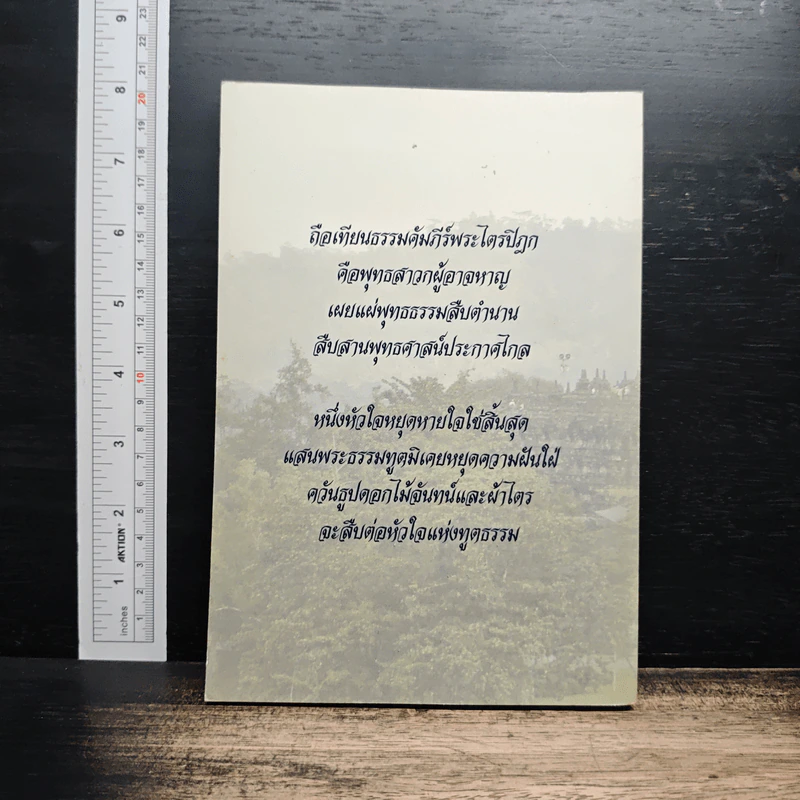 ถือเทียนธรรมคัมภีร์พระไตรปิฎก
คือพุทธสาวกผู้อาจหาญ
เผยแผ่พุทธธรรมสืบตำนาน
สืบสานพุทธศาสน์ประกาศไกล
หนึ่งหัวใจหยุดหายใจใช่สิ้นสุด
แสนพระธรรมทูตมิเคยหยุดความฝันใฝ่
ควันธูปดอกไม้จันทน์และผ้าไตร
จะสืบต่อหัวใจแห่งทูตธรรม
9
8
7
6
5
4
3
2
1
inches
AKTION®
23
22
21
20
19
18
17
16
15
14
13
12
11
10
9
8
7
6
5
4
3
2
1